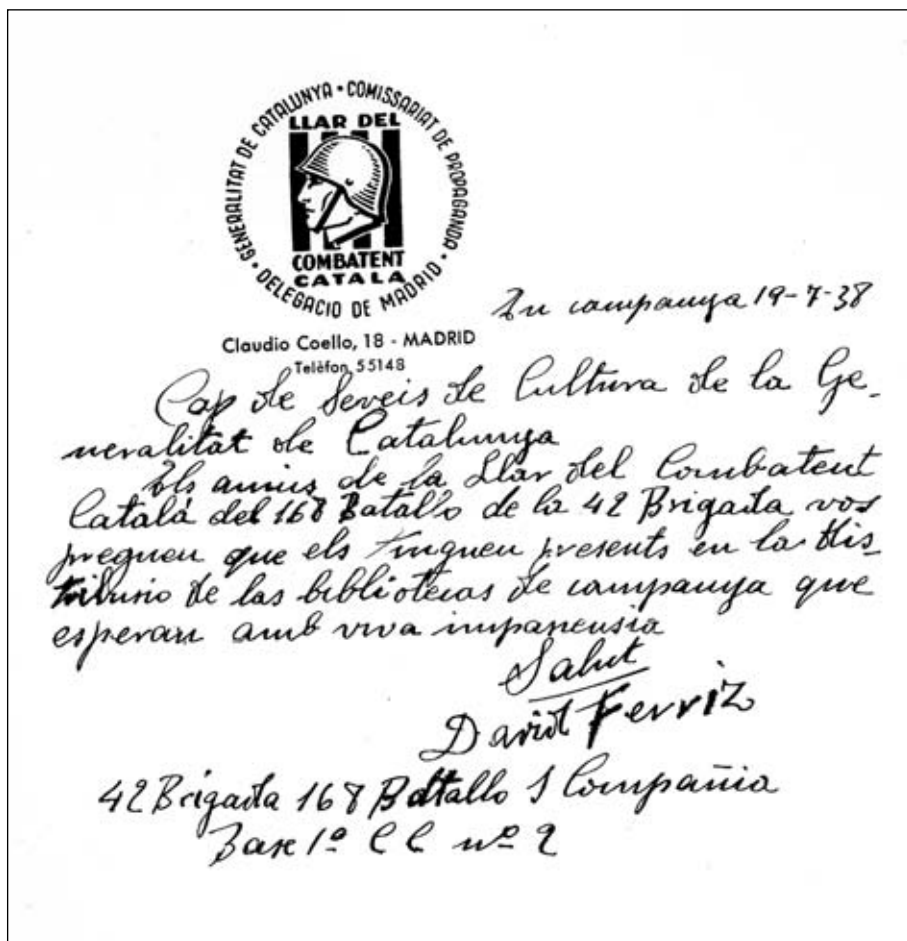 GENERALITAT DE CATALUNYA • COMISSARIAT DE PROPAGANDA • DELEGACIO DE MADRID •
LLAR DEL
COMBATENT
CATALA
Claudio Coello, 18 - MADRID
Telèfon 55148
En campanya 19-7-38
Cap de Serveis de Cultura de la Ge-
neralitat de Catalunya
Els amics de la Llar del Combatent
Catalá del 168 Batallo de la 42 Brigada vos
pregueu que els tingueu presents en la dis-
tribusio de las bibliotecas de campanya que
esperan amb viva impaciensia
Salut
David Ferriz
42 Brigada 168 Batallo 1 Compañia
Base 1ª C C nº 2